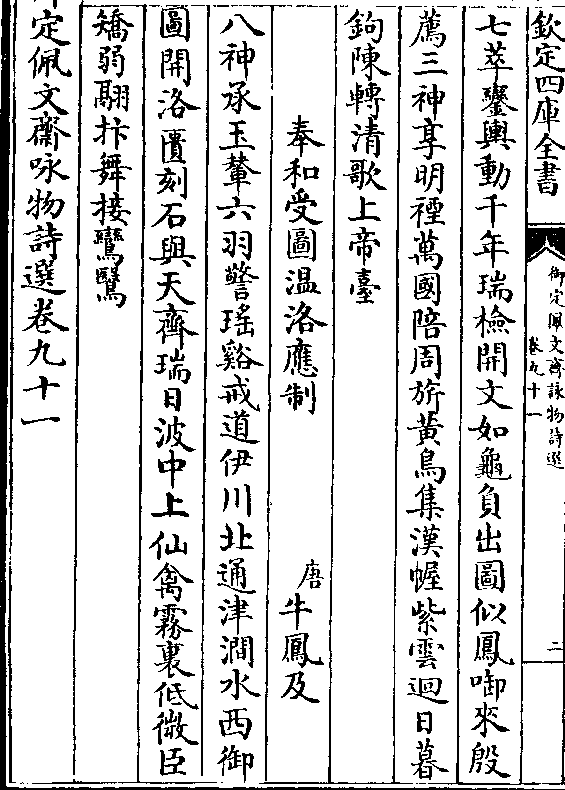 欽定四庫全書
御定佩文齋詠物詩選
卷九十一
二
七萃鑾輿動千年瑞檢開文如龜負出圖似鳳啣來殷
薦三神享明禋萬國陪周旂黃鳥集漢幄紫雲迴日暮
鉤陳轉清歌上帝臺
奉和受圖温洛應制
唐
牛鳳及
八神承玉輦六羽警瑤谿戒道伊川北通津澗水西御
圖開洛匱刻石與天齊瑞日波中上仙禽霧裏低微臣
矯弱翮抃舞接鸞鷖
定佩文齋咏物詩選卷九十一